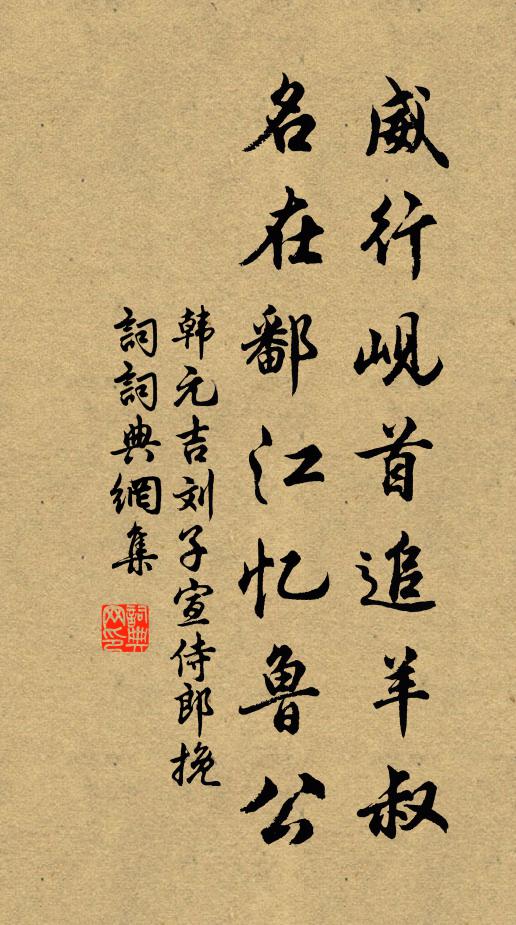 威行岘首追羊叔
名在鄱江忆鲁公
韩元吉刘子宣侍郎挽
詞詞典網集
詞典網印